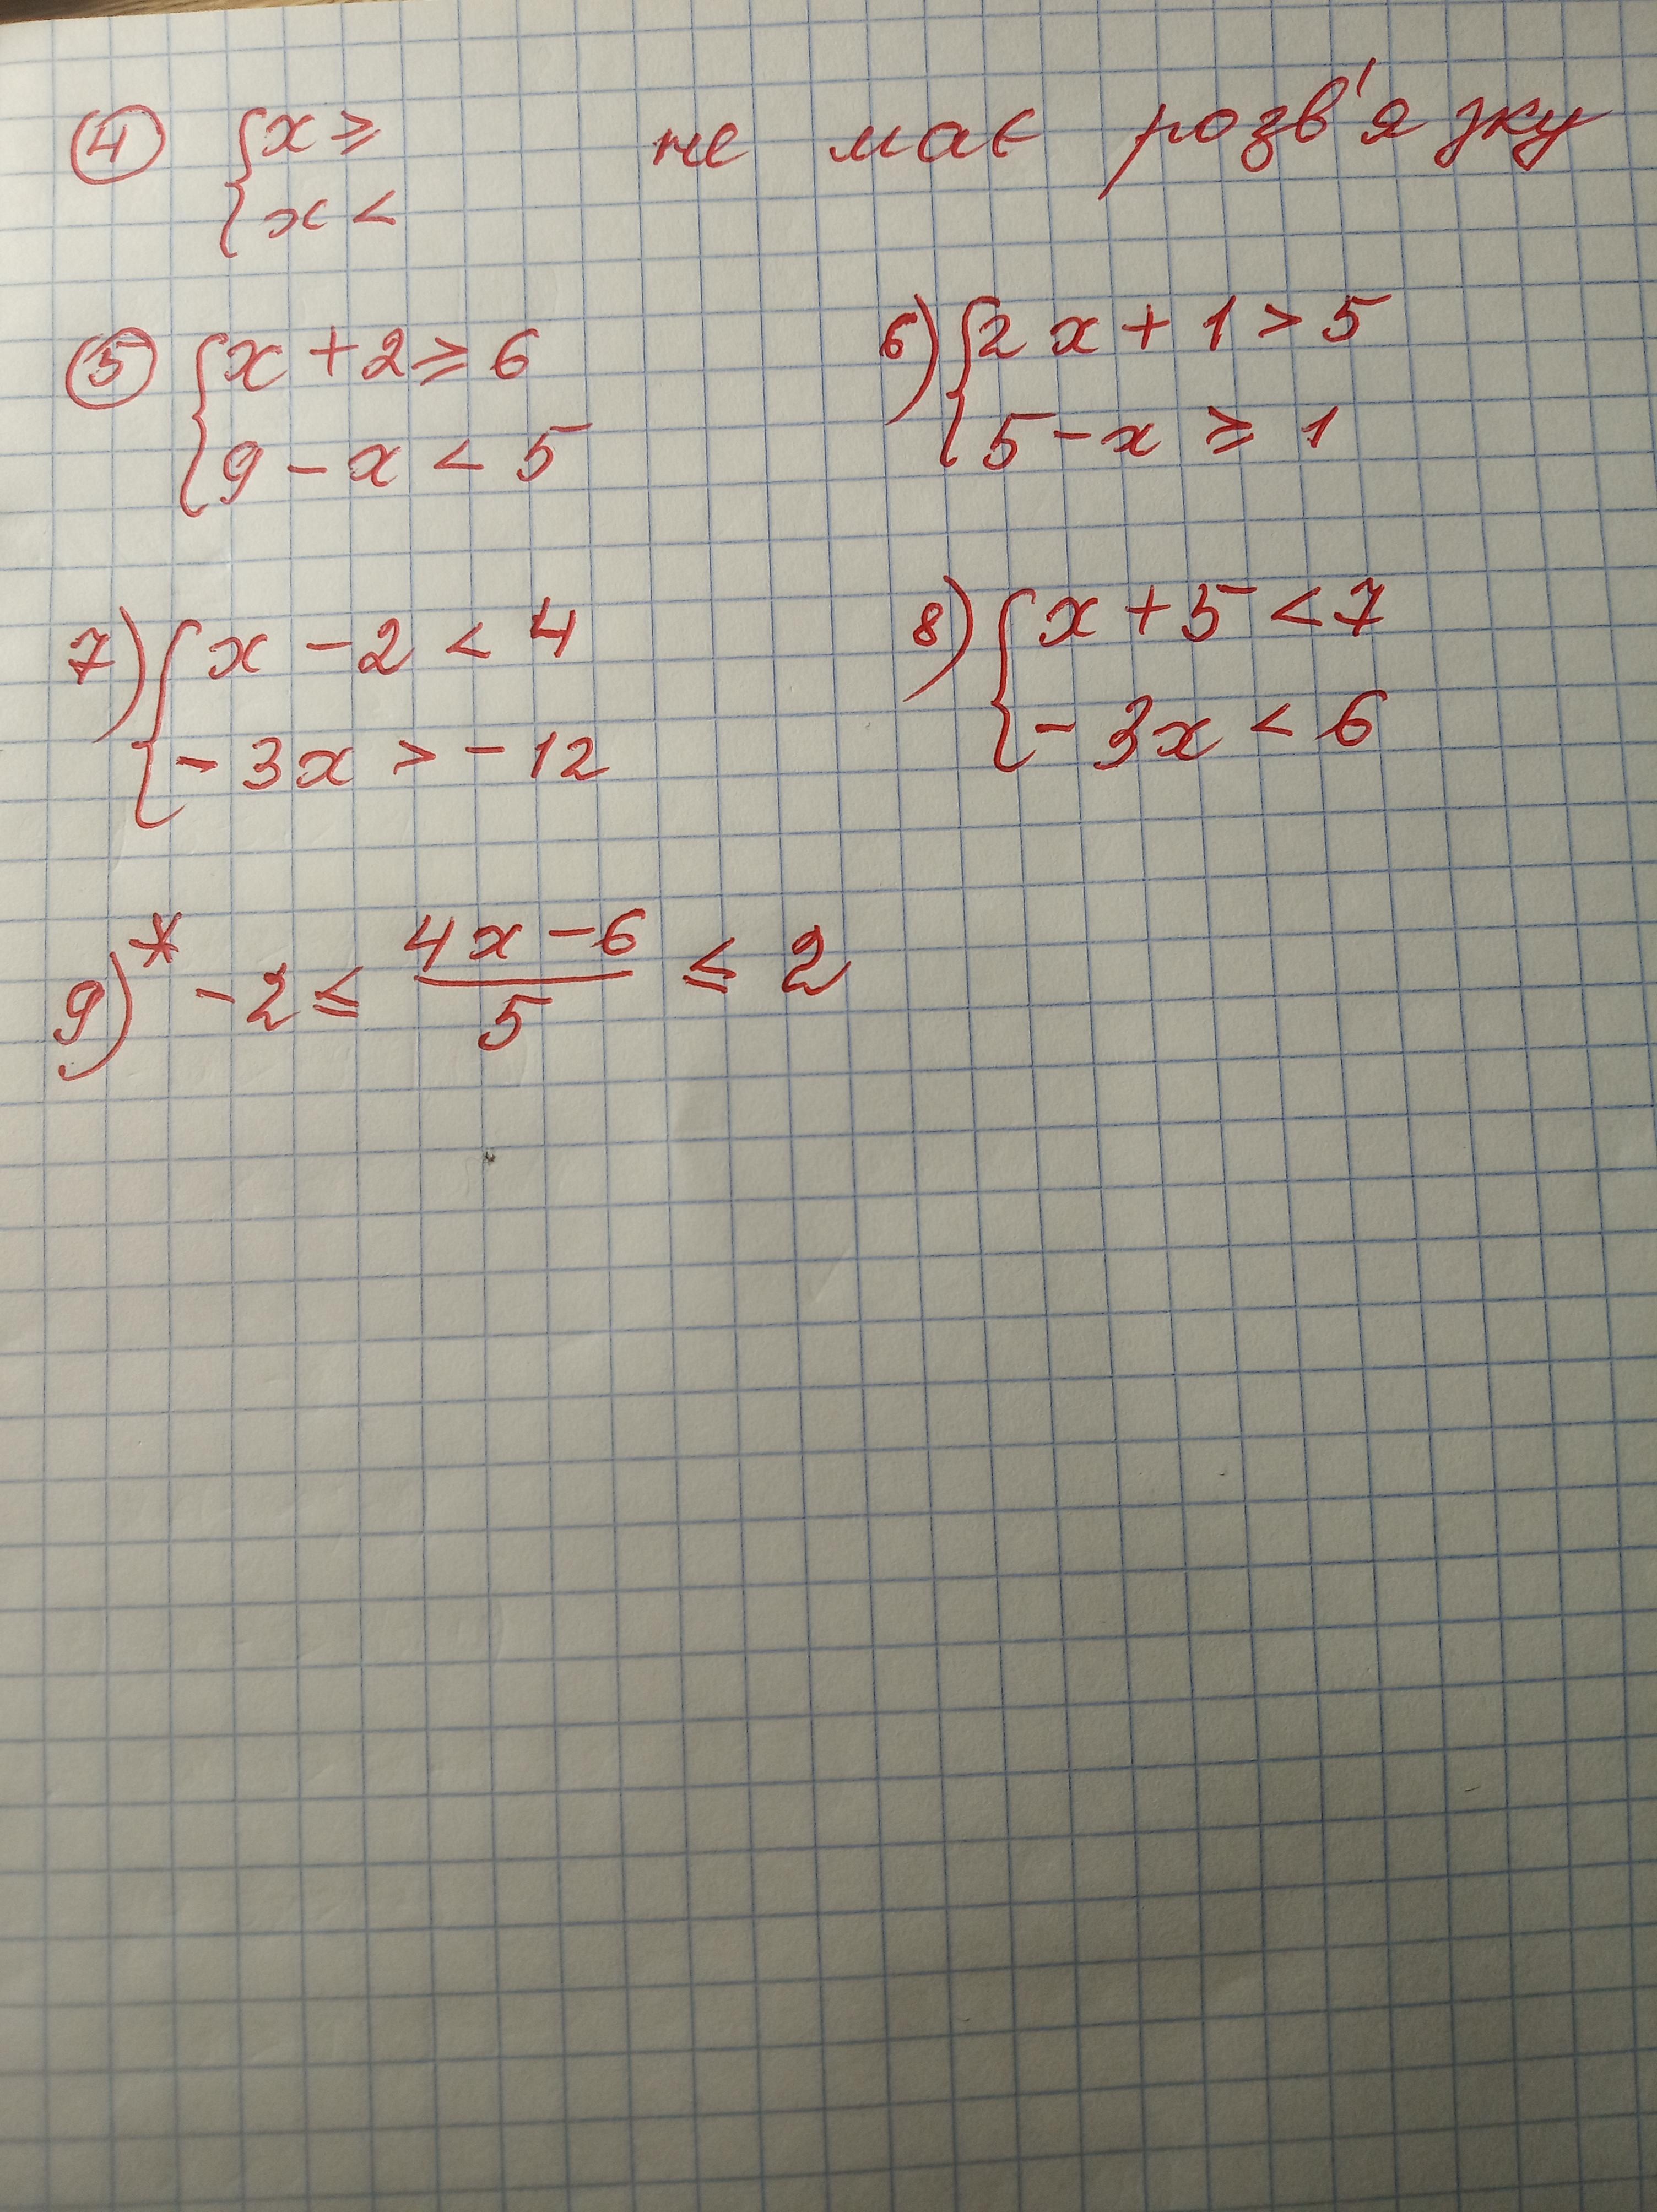 4 { x ≥ не має розв'язку
x <
5 { x + 2 ≥ 6
9 - x < 5
6) { 2x + 1 > 5
5 - x ≥ 1
7) { x - 2 < 4
- 3x > - 12
8) { x + 5 < 7
- 3x < 6
9)* - 2 ≤ (4x - 6)/5 ≤ 2